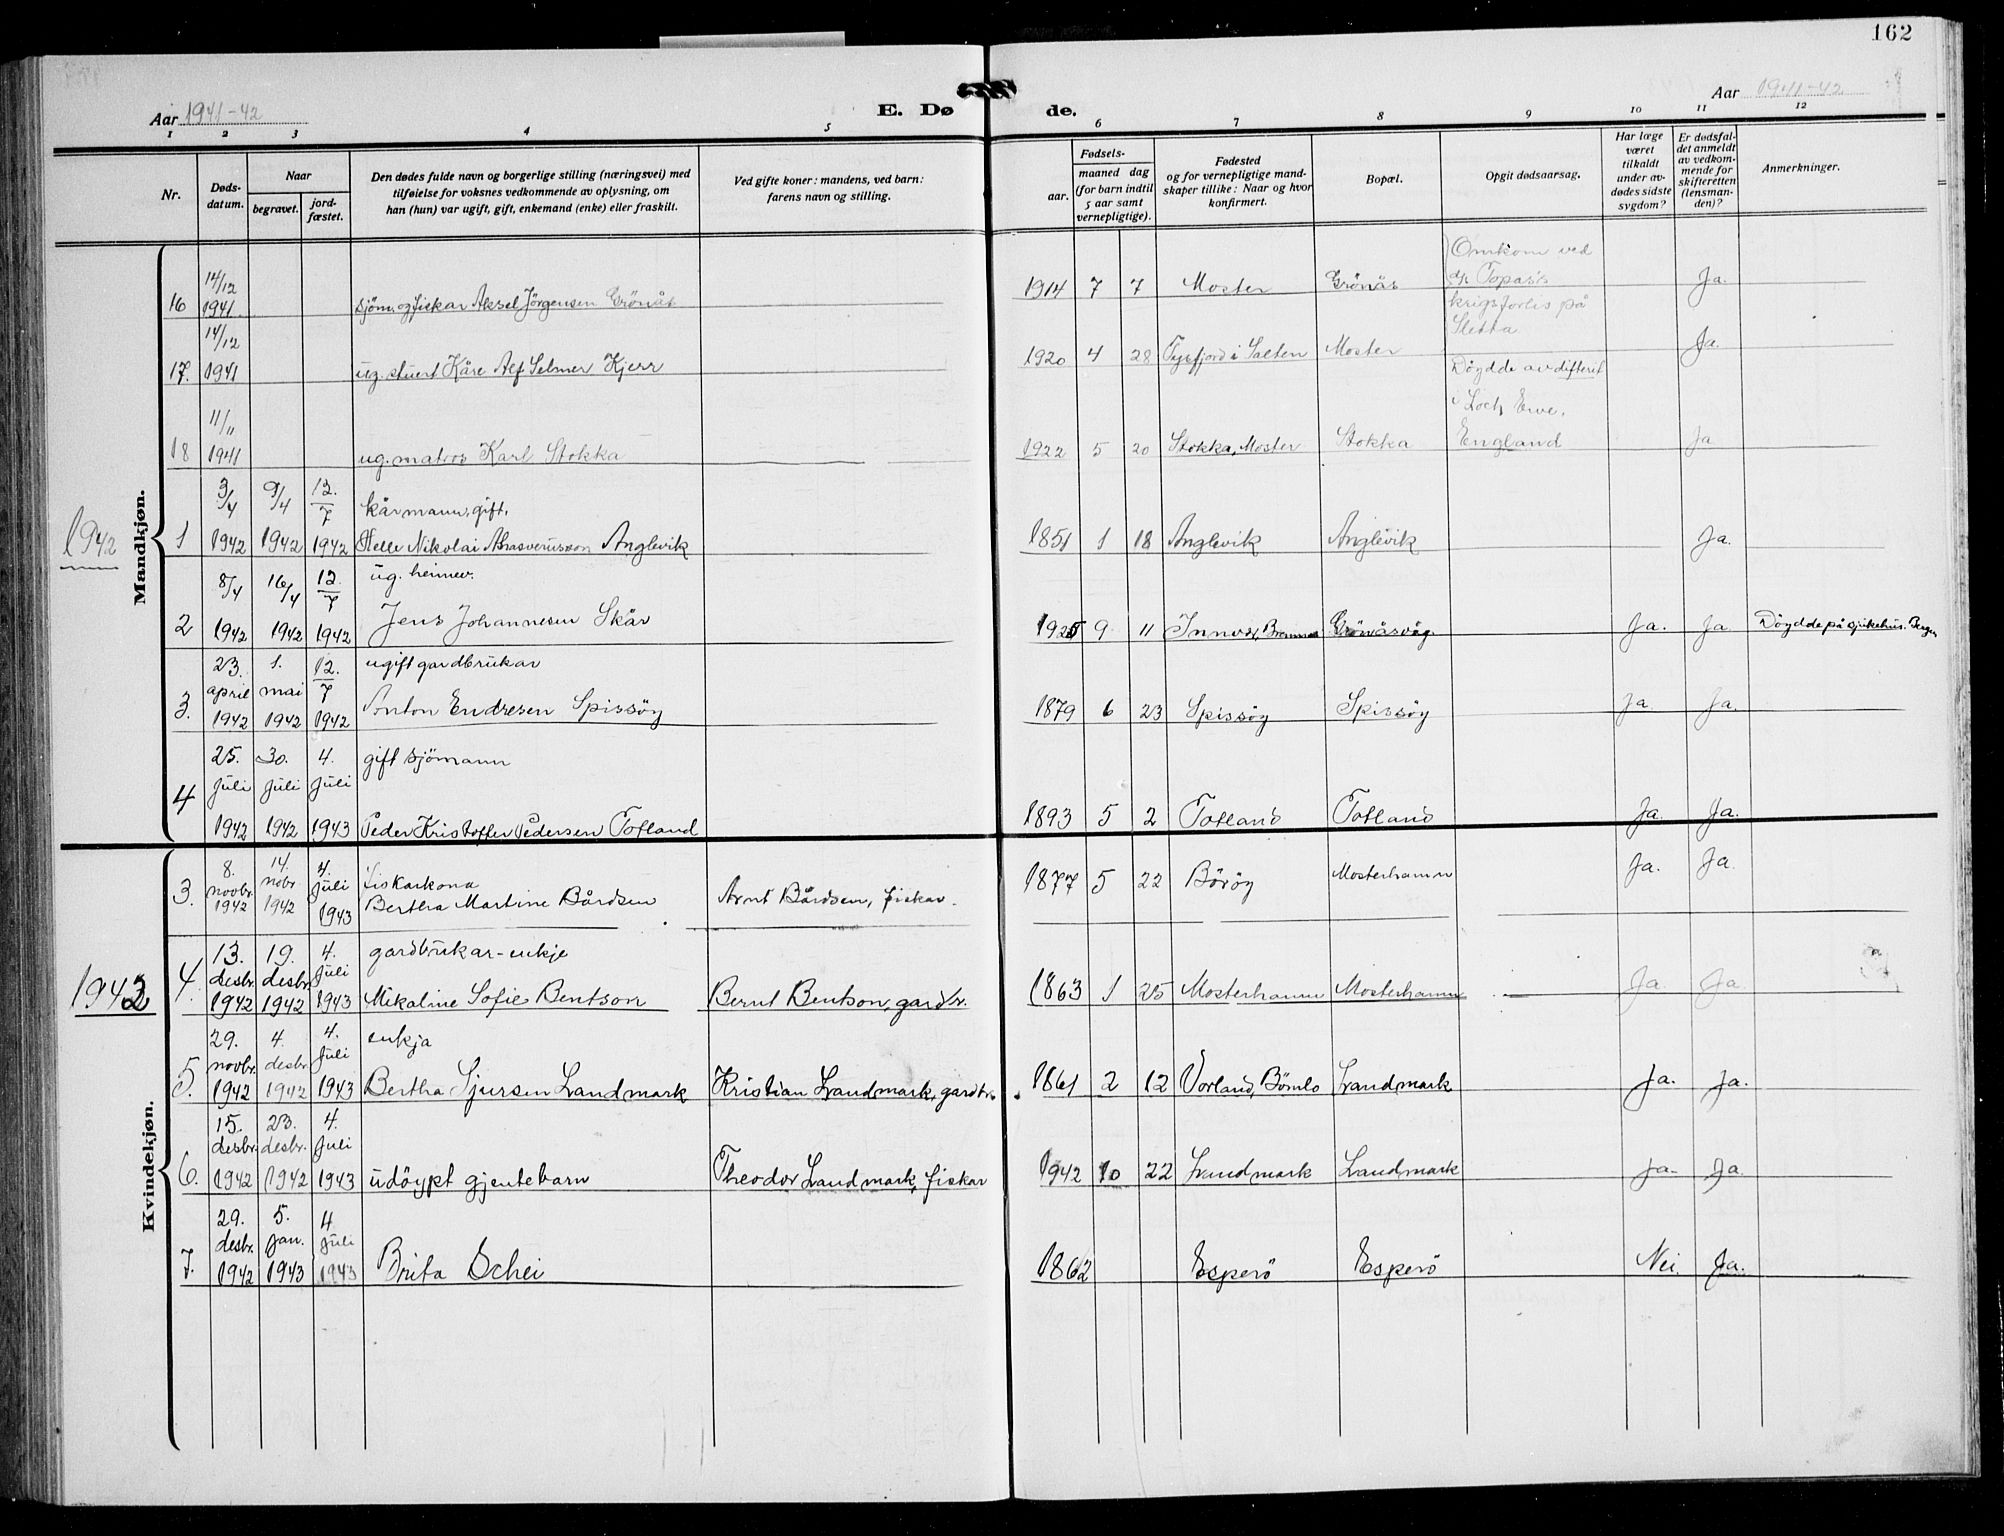 162
Aar 1941-42
E. Dø de.
Aar 1941-42
1 2 3 4 5 6 7 8 9 10 11 12
Nr.
Døds-
datum.
Naar
begravet.
jord-
fæstet.
Den dødes fulde navn og borgerlige stilling (næringsvei) med
tilføielse for voksnes vedkommende av oplysning, om
han (hun) var ugift, gift, enkemand (enke) eller fraskilt.
Ved gifte koner: mandens, ved barn:
farens navn og stilling.
Fødsels-
aar.
maaned dag
(for barn indtil
5 aar samt
vernepligtige).
Fødested
og for vernepligtige mand-
skaper tillike: Naar og hvor
konfirmert.
Bopæl.
Opgit dødsaarsag.
Har læge
været
tilkaldt
under av-
dødes sidste
sygdom?
Er dødsfal-
det anmeldt
av vedkom-
mende for
skifteretten
(lensman-
den)?
Anmerkninger.
Mandkjøn.
16 14/12 1941 sjöm. og fiskar Aksel Jörgensen Grönås 1914 7 7 Moster Grönås Omkom ved
d/s Topas's
krigsforlis på
Sletta Ja.
17. 14/12 1941 ug. stuert Kåre Alf Selmer Kjerr 1920 4 28 Tysfjord i Salten Moster Ja.
18 11/11 1941 ug. matros Karl Stokka 1922 5 20 Stokka, Moster Stokka Döydde av difterit
i Loch Ewe,
England Ja
1942
1 3/4 1942 9/4 1942 12/7 1942 kårmann, gift,
Helle Nikolai Ahasverusson Anglevik 1851 1 18 Anglevik Anglevik Ja.
2 8/4 1942 16/4 1942 12/7 1942 ug. heimev.
Jens Johannesen Skår 1925 9 11 Grönåsvåg. Ja. Ja Döydde på sjukehus. Bergen
3. 23. april 1942 1. mai 1942 12/7 1942 ugift gardbrukar
Anton Endresen Spissöy 1879 6 23 Spissöy Spissöy Ja Ja.
4 25. Juli 1942 30. Juli 1942 4. Juli 1943 gift sjömann
Peder Kristoffer Pedersen Totland 1893 5 2 Totland Totland Ja. Ja.
Kvindekjøn.
1942
3. 8. novbr. 1942 14. nobr 1942 4. Juli 1943 fiskarkona
Bertha Martine Bårdsen Arnt Bårdsen, fiskar. 1877 5 22 Böröy Mosterhamn Ja. Ja.
4. 13. desbr. 1942 19. desbr. 1942 4. Juli 1943 gardbrukar-enkje
Mikaline Sofie Bentson Bernt Bentson, gardbr. 1863 1 25 Mosterhamn Mosterhamn Ja. Ja
5. 29. novbr. 1942 4. desbr. 1942 4. Juli 1943 enkja
Bertha Sjursen Landmark Kristian Landmark, gardbr. 1861 2 12 Vorland, Bömlo Landmark Ja. Ja.
6. 15. desbr. 1942 23. desbr. 1942 4. Juli 1943 udöypt gjentebarn Theodor Landmark, fiskar 1942 10 22 Landmark Landmark Ja. Ja.
7. 29. desbr. 1942 5. Jan. 1943 4 Juli 1943 Brita Schei 1862 Esperö Esperö Nei. Ja.